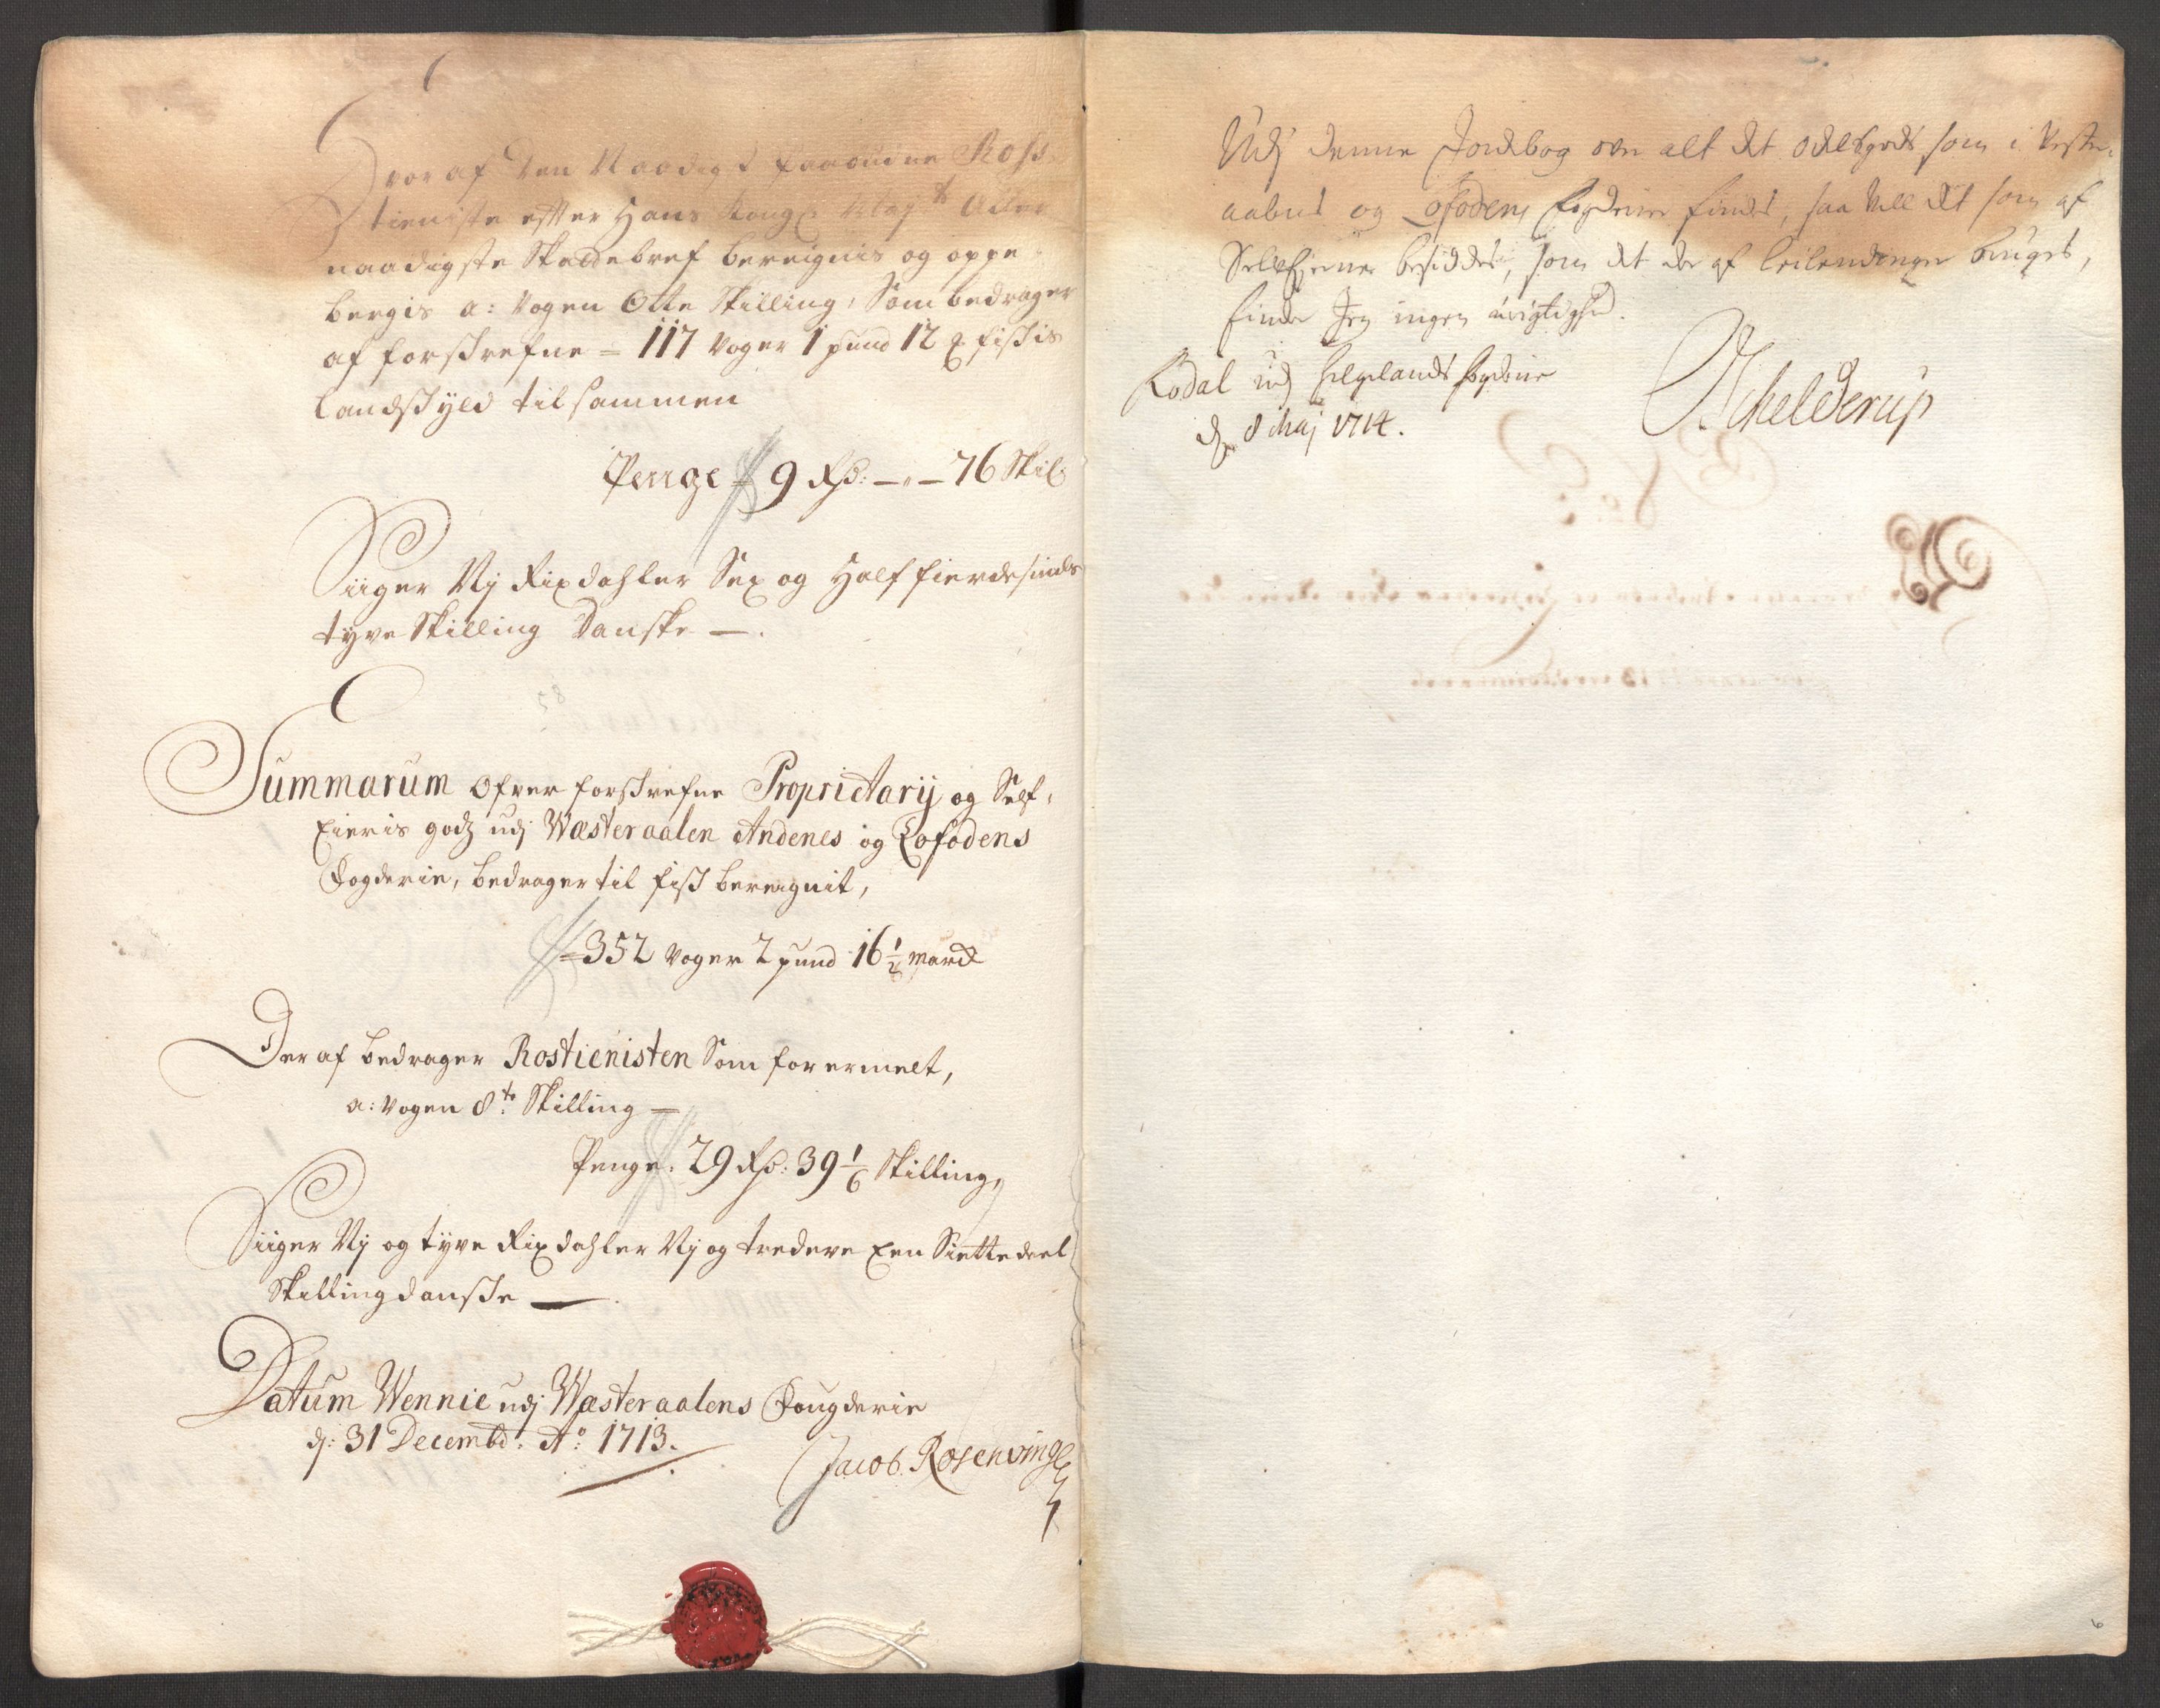 Hvor af den Naadigst paabudne Ross
tieniste efter Hans Kongl: Mayts Aller
naadigste Skattebref bereignis og oppe
bergis a: Vogen Otte Skilling, Som bedrager
af forschrefne = 117 Voger 1 pund 12 fischis
Landschyld tilsammen
Penge 9 Rd: - „ - 76 Skil
Siiger Nj Rixdahler Sex og Halffierdesinds
tyve Skilling Danske —.
Summarum Ofver forschrefne Proprietarij og Self,
Eieris godz udj Wæsteraalen Andenes og Lofodens
Fogderie, bedrager til fisch bereignit,
= 352 Voger 2 pund 16 1/2 march
Deraf bedrager Rostienisten Som forermelt,
a: Vogen 8te Skilling —
Penge. 29 Rd: 39 1/6 Skilling,
Siiger Nj og tyve Rixdahler Nj og tredeve Een Siettedeel
Skilling dansche —.
Datum Wennie udj Wæsteraalens Fougderie
d: 31 Decembd: Ao: 1713.
Jacob Rosenvinge
Udj denne Jordebog over alt det odelsgods som i Vester,
aalens og Lofodens fogderie findes, saa vell det som af
Selfejerne besiddes, som det der af leilendinger bruges,
finder Jeg ingen urigtighed.
Rodal udj Helgelands fogderie
d 8 Maj 1714.
Schelderup
6